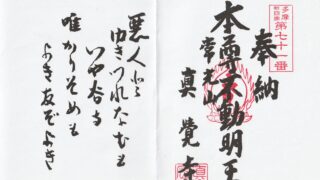 多摩
四国
第七十一番
奉納
本尊不動明王
常光山
真覺寺
悪人と
ゆきつれなむも
いやだに寺
唯かりそめも
よき友ぞよき